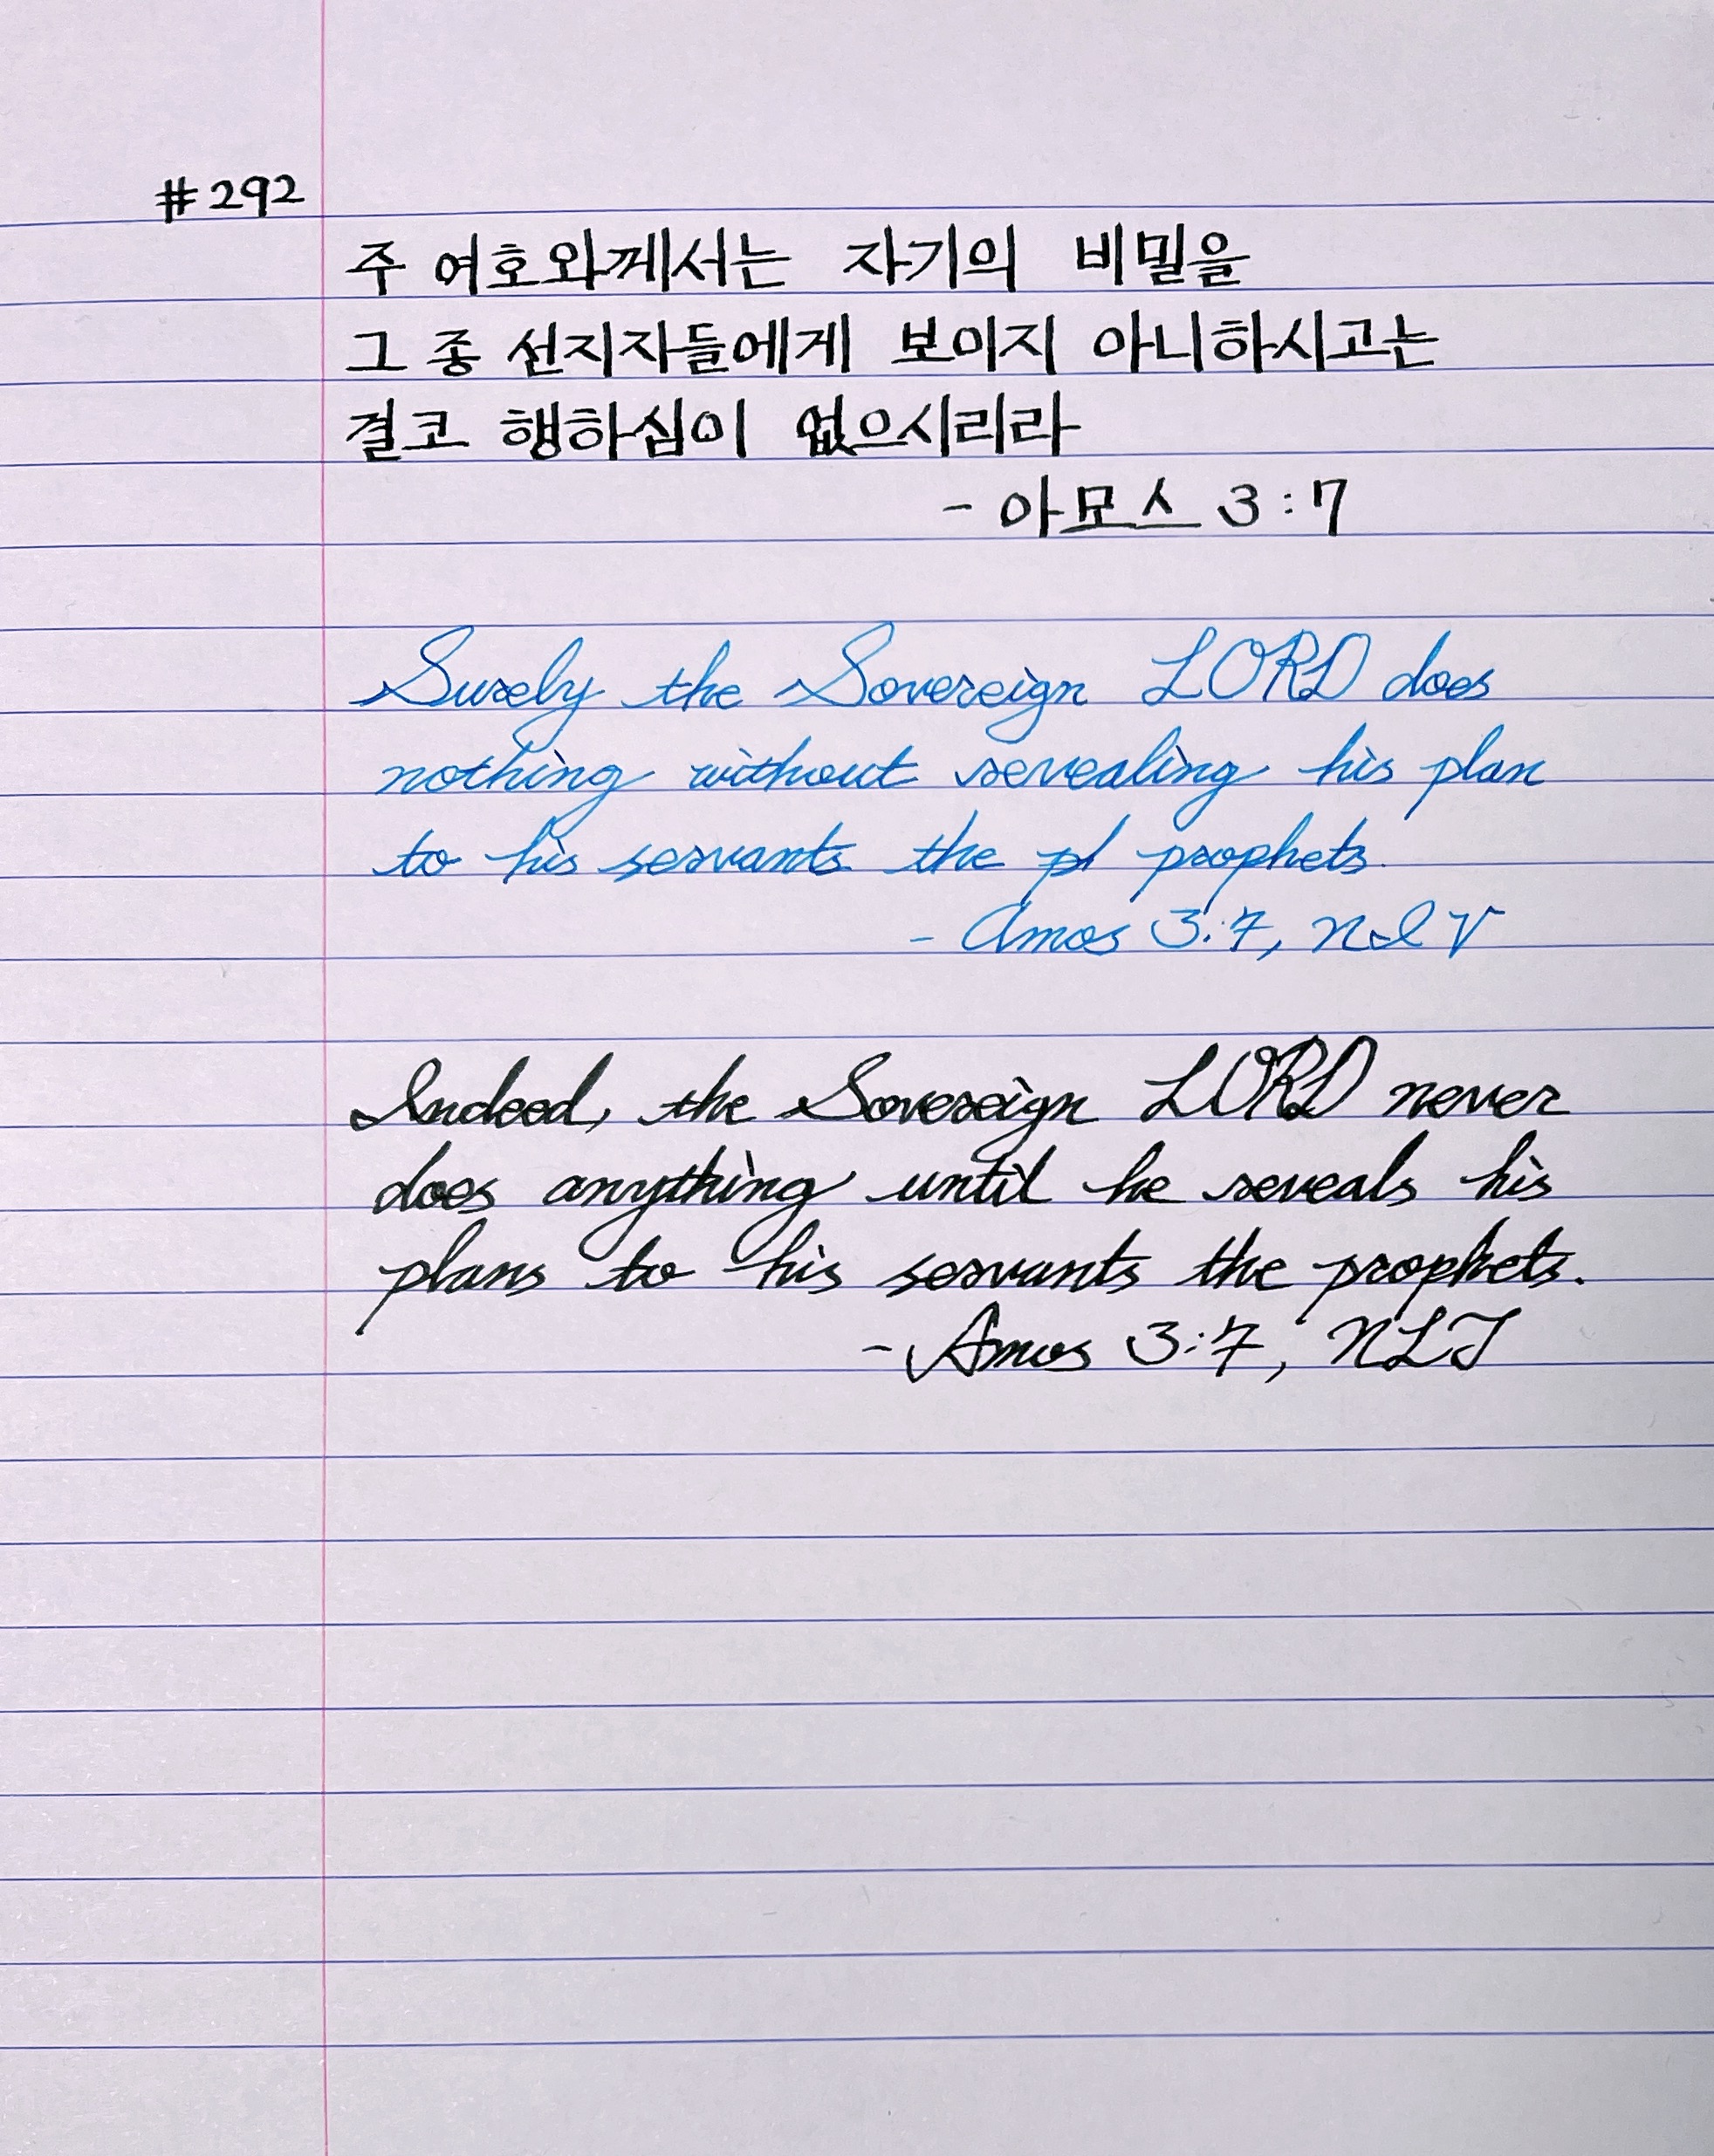 #292
주 여호와께서는 자기의 비밀을
그 종 선지자들에게 보이지 아니하시고는
결코 행하심이 없으시리라
- 아모스 3:7
Surely the Sovereign LORD does
nothing without revealing his plan
to his servants the pl prophets.
- Amos 3:7, NIV
Indeed, the Sovereign LORD never
does anything until he reveals his
plans to his servants the prophets.
- Amos 3:7, NLT